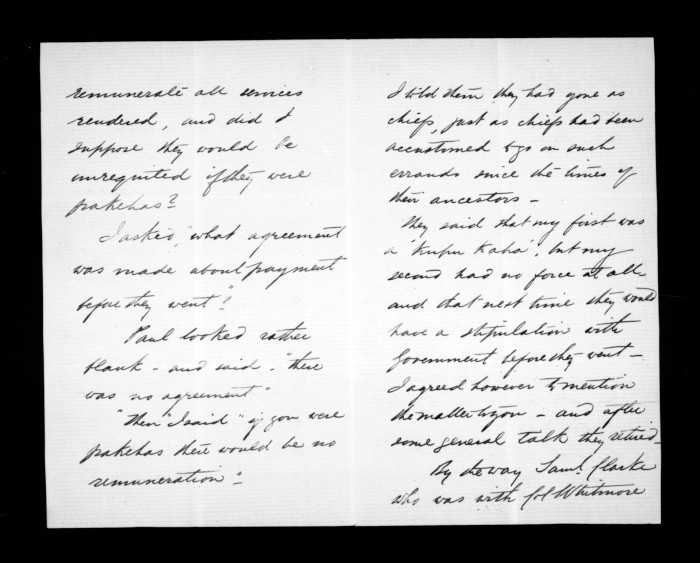 remunerate all services
rendered, and did I
suppose they would be
unrequited if they were
pakehas?
I asked, "what agreement
was made about payment
before they went"?
Paul looked rather
blank - and said - "there
was no agreement"
"Then" I said "if you were
pakehas there would be no
remuneration" -
I told them they had gone as
chiefs, just as chiefs had been
accustomed to go on such
errands since the times of
their ancestors -
They said that my first was
a "Kupu Kaha", but my
second had no force at all
and that next time they would
have a stipulation with
Government before they went -
I agreed however to mention
the matter to you - and after
some general talk they retired -
By the way Saml. Clarke
who was with Col Whitmore